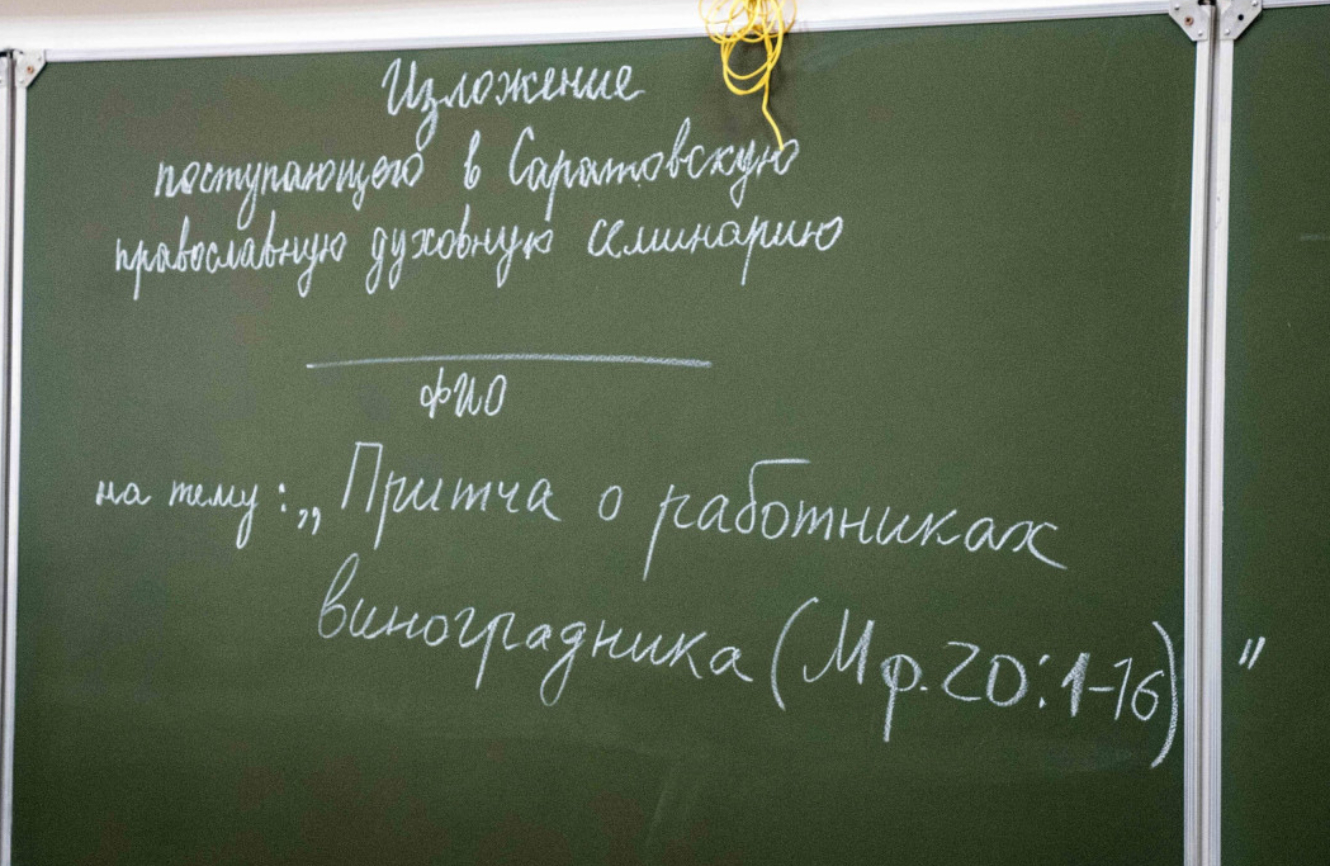 Изложение
поступающего в Саратовскую
православную духовную семинарию
ФИО
на тему: „Притча о работниках
виноградника (Мф. 20:1-16)"